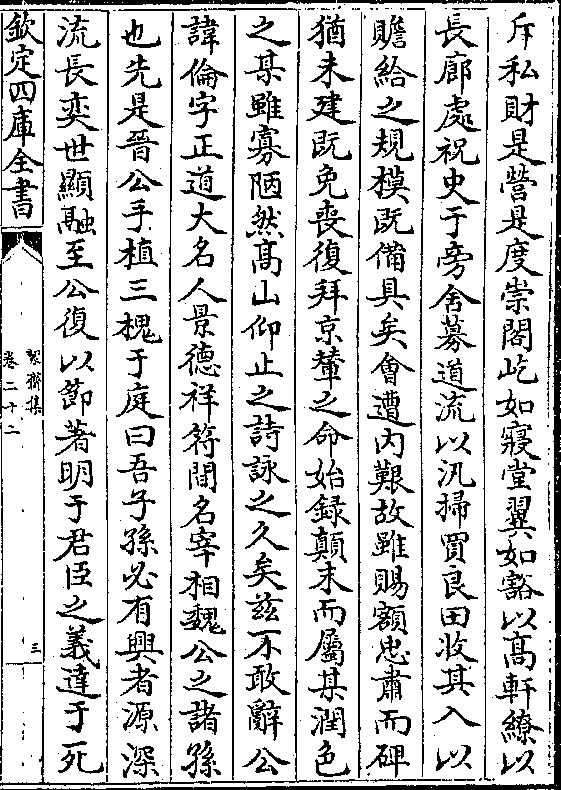 斥私財是營是度崇閣屹如寢堂翼如豁以髙軒繚以
長廊處祝史于旁舍募道流以汛掃買良田收其入以
贍給之規模既備具矣會遭内艱故雖賜額忠肅而碑
猶未建既免喪復拜京輦之命始録顛末而屬某潤色
之某雖寡陋然髙山仰止之詩詠之久矣兹不敢辭公
諱倫字正道大名人景德祥符間名宰相魏公之諸孫
也先是晉公手植三槐于庭曰吾子孫必有興者源深
流長奕世顯融至公復以節著明于君臣之義達于死
欽定四庫全書
絜齋集
卷二十二
三